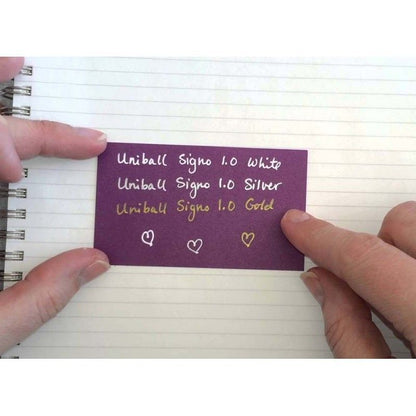 Uniball Signo 1.0 White
Uniball Signo 1.0 Silver
Uniball Signo 1.0 Gold